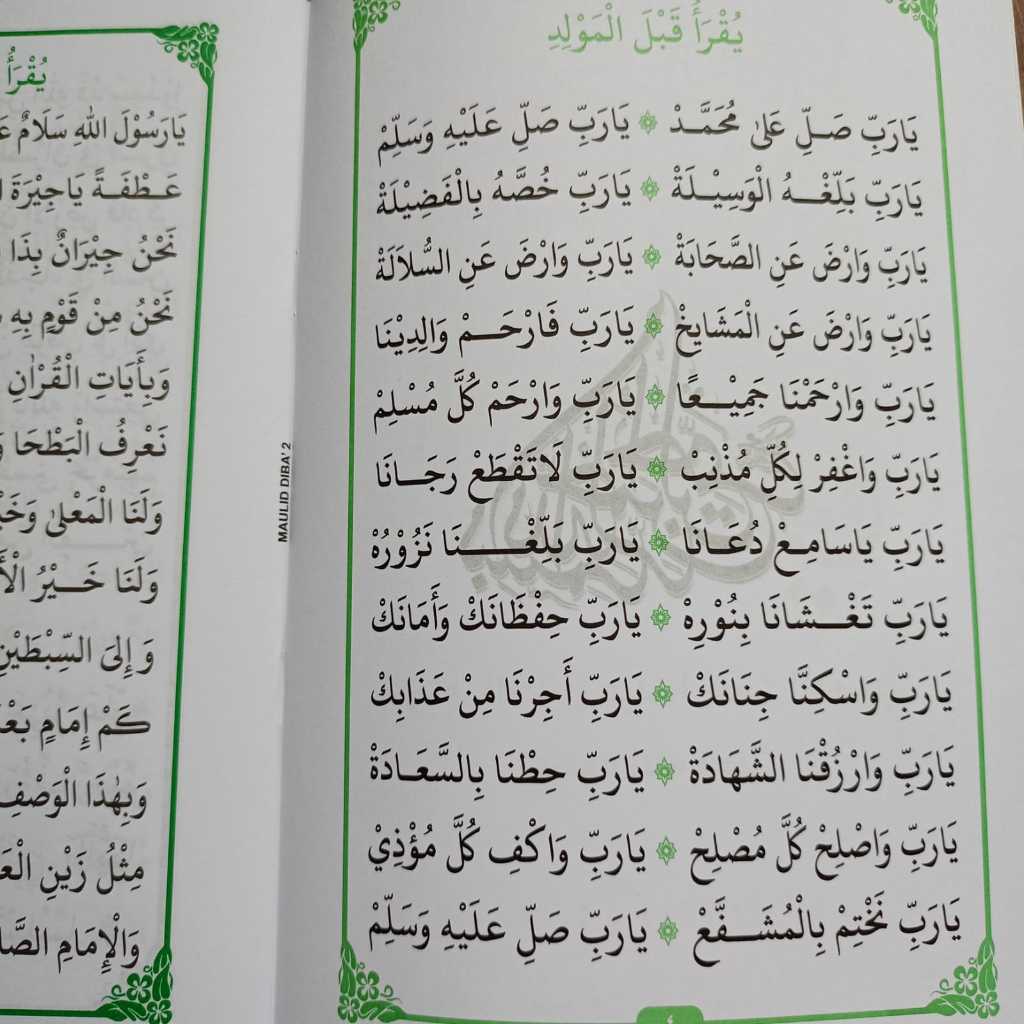 يُقْرَأُ قَبْلَ الْمَوْلِدِ
يَارَبِّ صَلِّ عَلىٰ مُحَمَّدْ ۞ يَارَبِّ صَلِّ عَلَيْهِ وَسَلِّمْ
يَارَبِّ بَلِّغْهُ الْوَسِيْلَةْ ۞ يَارَبِّ خُصَّهُ بِالْفَضِيْلَةْ
يَارَبِّ وَارْضَ عَنِ الصَّحَابَةْ ۞ يَارَبِّ وَارْضَ عَنِ السُّلَالَةْ
يَارَبِّ وَارْضَ عَنِ الْمَشَايِخْ ۞ يَارَبِّ فَارْحَمْ وَالِدِيْنَا
يَارَبِّ وَارْحَمْنَا جَمِيْعًا ۞ يَارَبِّ وَارْحَمْ كُلَّ مُسْلِمْ
يَارَبِّ وَاغْفِرْ لِكُلِّ مُذْنِبْ ۞ يَارَبِّ لَاتَقْطَعْ رَجَانَا
يَارَبِّ يَاسَامِعْ دُعَانَا ۞ يَارَبِّ بَلِّغْنَا نَزُوْرُهْ
يَارَبِّ تَغْشَانَا بِنُوْرِهْ ۞ يَارَبِّ حِفْظَانَكْ وَأَمَانَكْ
يَارَبِّ وَاسْكِنَّا جِنَانَكْ ۞ يَارَبِّ أَجِرْنَا مِنْ عَذَابِكْ
يَارَبِّ وَارْزُقْنَا الشَّهَادَةْ ۞ يَارَبِّ حِطْنَا بِالسَّعَادَةْ
يَارَبِّ وَاصْلِحْ كُلَّ مُصْلِحْ ۞ يَارَبِّ وَاكْفِ كُلَّ مُؤْذِيْ
يَارَبِّ نَخْتِمْ بِالْمُشَفَّعْ ۞ يَارَبِّ صَلِّ عَلَيْهِ وَسَلِّمْ
٤
MAULID DIBA' 2
يُقْرَأُ
يَارَسُوْلَ اللهِ سَلَامٌ
عَطْفَةً يَاجِيْرَةَ
نَحْنُ جِيْرَانٌ بِذَا
نَحْنُ مِنْ قَوْمٍ بِهِ
وَبِأَيَاتِ الْقُرْاٰنِ
نَعْرِفُ الْبَطْحَا
وَلَنَا الْمَعْلىٰ
وَلَنَا خَيْرُ
وَإِلَى السِّبْطَيْنِ
كَمْ إِمَامٍ
وَبِهٰذَا الْوَصْفِ
مِثْلُ زَيْنِ
وَالْإِمَامِ